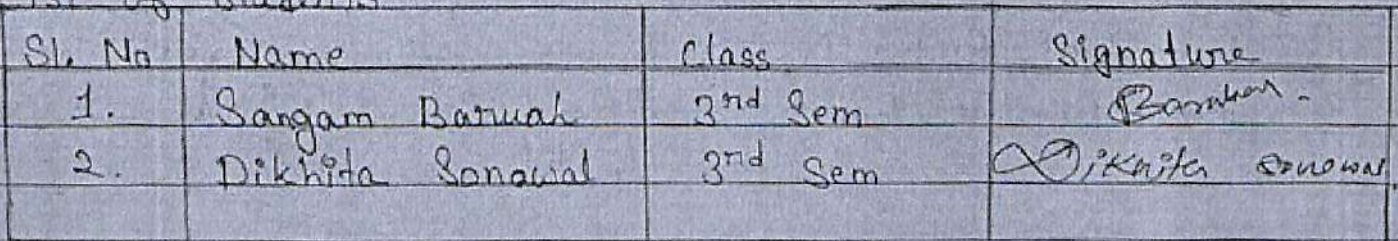 List of Students
Sl. No Name Class Signature
1. Sangam Baruah 3rd Sem Baruah
2. Dikhita Sonowal 3rd Sem Dikhita Sonowal